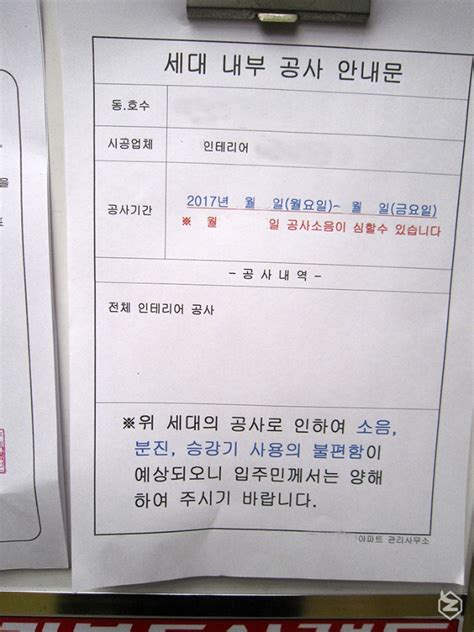 세대 내부 공사 안내문
동.호수
시공업체 인테리어
공사기간 2017년 월 일(월요일)~ 월 일(금요일)
※ 월 일 공사소음이 심할수 있습니다
- 공 사 내 역 -
전체 인테리어 공사
※위 세대의 공사로 인하여 소음,
분진, 승강기 사용의 불편함이
예상되오니 입주민께서는 양해
하여 주시기 바랍니다.
아파트 관리사무소
을